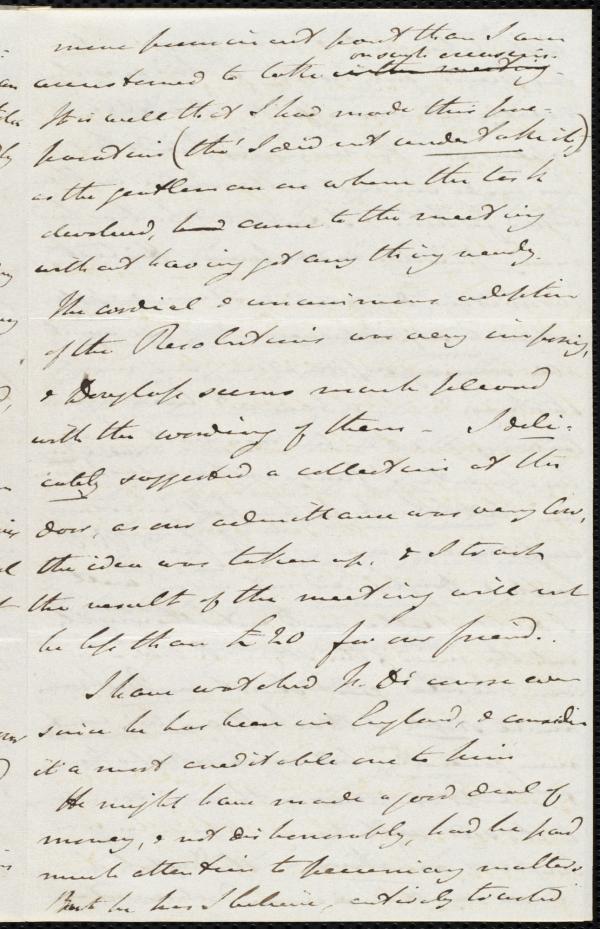 more prominent part than I am
on such occasions.
accustomed to take in the meeting.
It is well that I had made this pre-
paration (tho' I did not undertake it)
as the gentleman on whom the task
devolved, had came to the meeting
without having got any thing ready.
The cordial & unanimous adoption
of the Resolutions was very imposing,
& Douglass seems much pleased
with the wording of them - I deli-
cately suggested a collection at the
door, as our admittance was very low,
the idea was taken up. & I trust
the result of the meeting will not
be less than £20 for our friend.
I have watched F. D's course ever
since he has been in England, & consider
it a most creditable one to him
He might have made a good deal of
money, & not dishonorably, had he paid
much attention to pecuniary matters
But he has I believe, entirely trusted